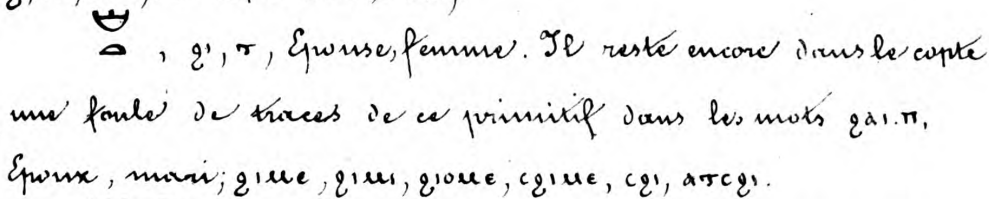 𓎟𓏏, ϩⲓ, ⲧ, Épouse, femme. Il reste encore dans le copte
une foule de traces de ce primitif dans les mots ϩⲁⲓ.ⲡ,
Époux, mari; ϩⲓⲙⲉ, ϩⲓⲙⲓ, ϩⲓⲟⲙⲉ, ⲥϩⲓⲙⲉ, ⲥϩⲓ, ⲁⲧⲥϩⲓ.